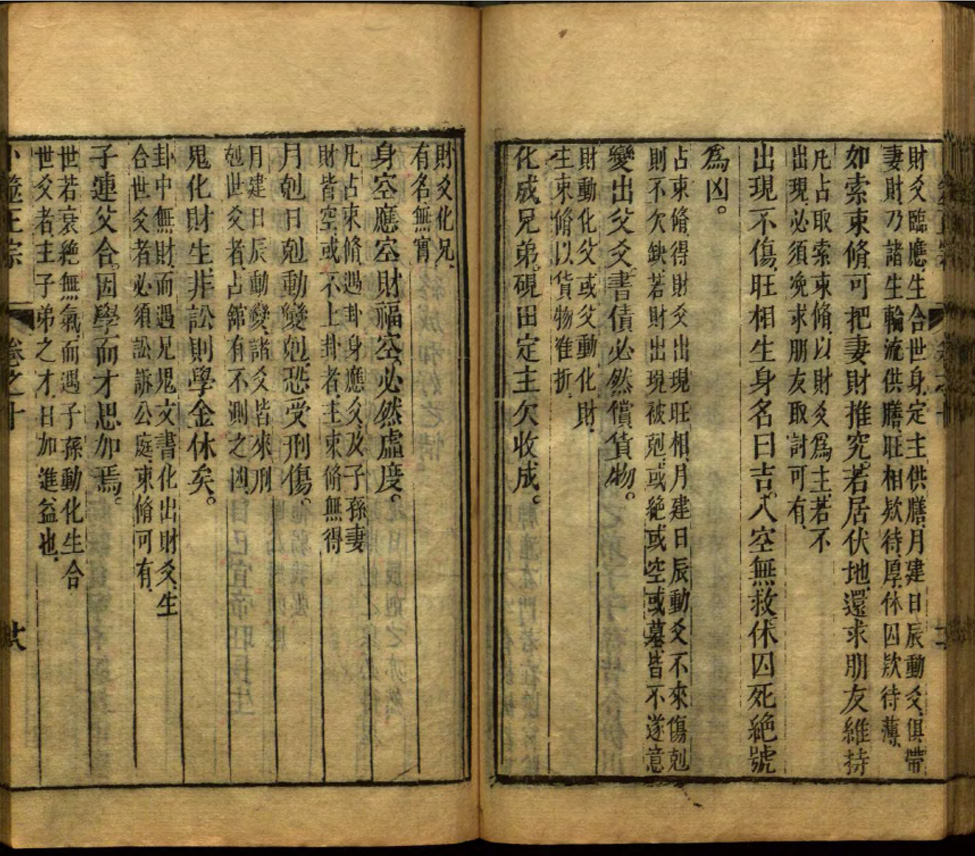 財爻臨應生合世身定主供膳月建日辰動爻俱帶
妻財乃諸生輪流供膳旺相欵待厚休囚欵待薄
如索束脩可把妻財推究若居伏地還求朋友維持
凡占取索束脩以財爻爲主若不
出現必須浼求朋友取討可有
出現不傷旺相生身名曰吉八空無救休囚死絶號
爲凶。
占束脩得財爻出現旺相月建日辰動爻不來傷剋
則不欠缺若財出現被剋或絶或空或墓皆不遂意
變出父爻書債必然償貨物。
財動化父或父動化財
生束脩以貨物准折
化成兄弟硯田定主欠收成。
財爻化兄
有名無實
身空應空財福空必然虚度。
凡占束脩遇卦身應爻及子孫妻
財皆空或不上卦者主束脩無得
月剋日剋動變剋恐受刑傷。
月建日辰動變諸爻皆來刑
剋世爻者占舘有不測之凶
鬼化財生非訟則學金休矣。
卦中無財而遇兄鬼文書化出財爻生
合世爻者必須訟訴公庭束脩可有
子連父合因學而才思加焉。
世若衰絶無氣而遇子孫動化生合
世爻者主子弟之才日加進益也
卜筮正宗
卷之十